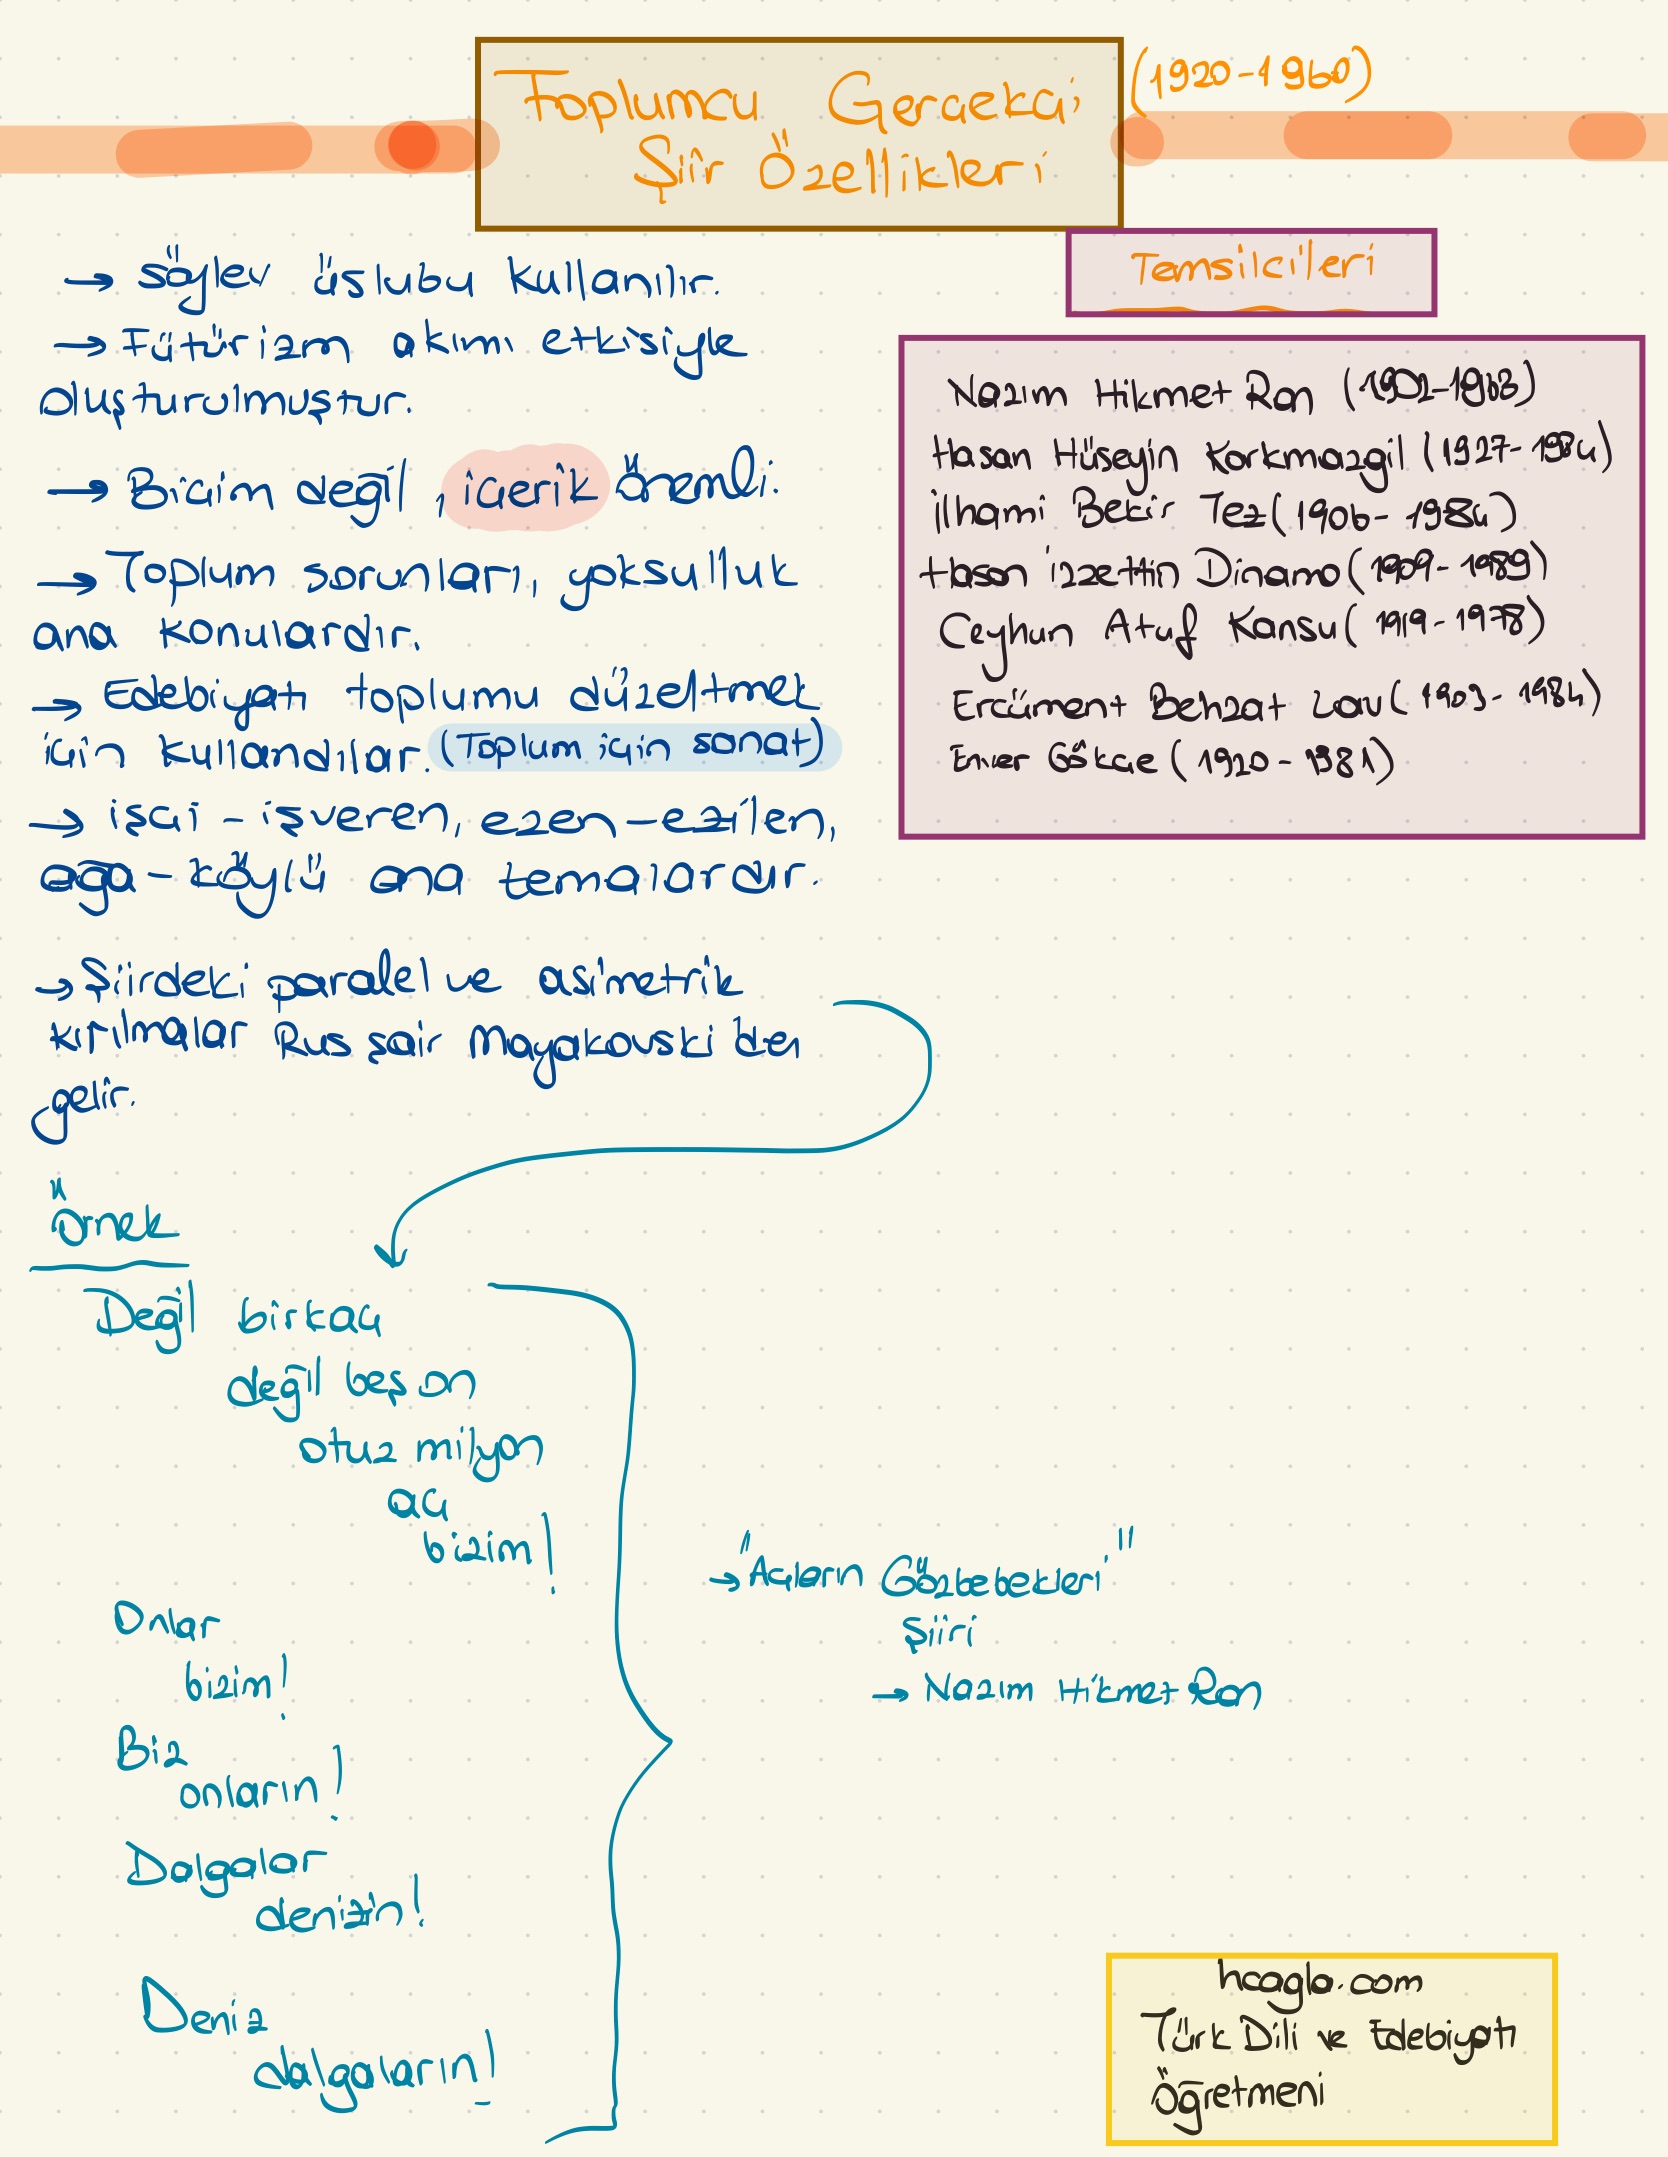 Toplumcu Gerçekçi
Şiir Özellikleri
(1920-1960)
→ söylev üslubu kullanılır.
→ Fütürizm akımı etkisiyle
oluşturulmuştur.
→ Biçim değil, içerik önemli.
→ Toplum sorunları, yoksulluk
ana konulardır.
→ Edebiyatı toplumu düzeltmek
için kullandılar. (Toplum için sanat)
→ işçi - işveren, ezen-ezilen,
ağa - köylü ana temalardır.
→ Şiirdeki paralel ve asimetrik
kırılmalar Rus şair Mayakovski'den
gelir.
Temsilcileri
Nazım Hikmet Ran (1902-1963)
Hasan Hüseyin Korkmazgil (1927-1984)
İlhami Bekir Tez (1906-1984)
Hasan İzzettin Dinamo (1909-1989)
Ceyhun Atuf Kansu (1919-1978)
Ercüment Behzat Lav (1903-1984)
Enver Gökçe (1920-1981)
Örnek
Değil birkaç
değil beş on
otuz milyon
aç
bizim!
Onlar
bizim!
Biz
onların!
Dalgalar
denizin!
Deniz
dalgaların!
→ "Açların Gözbebekleri"
Şiiri
→ Nazım Hikmet Ran
hcagla.com
Türk Dili ve Edebiyatı
Öğretmeni